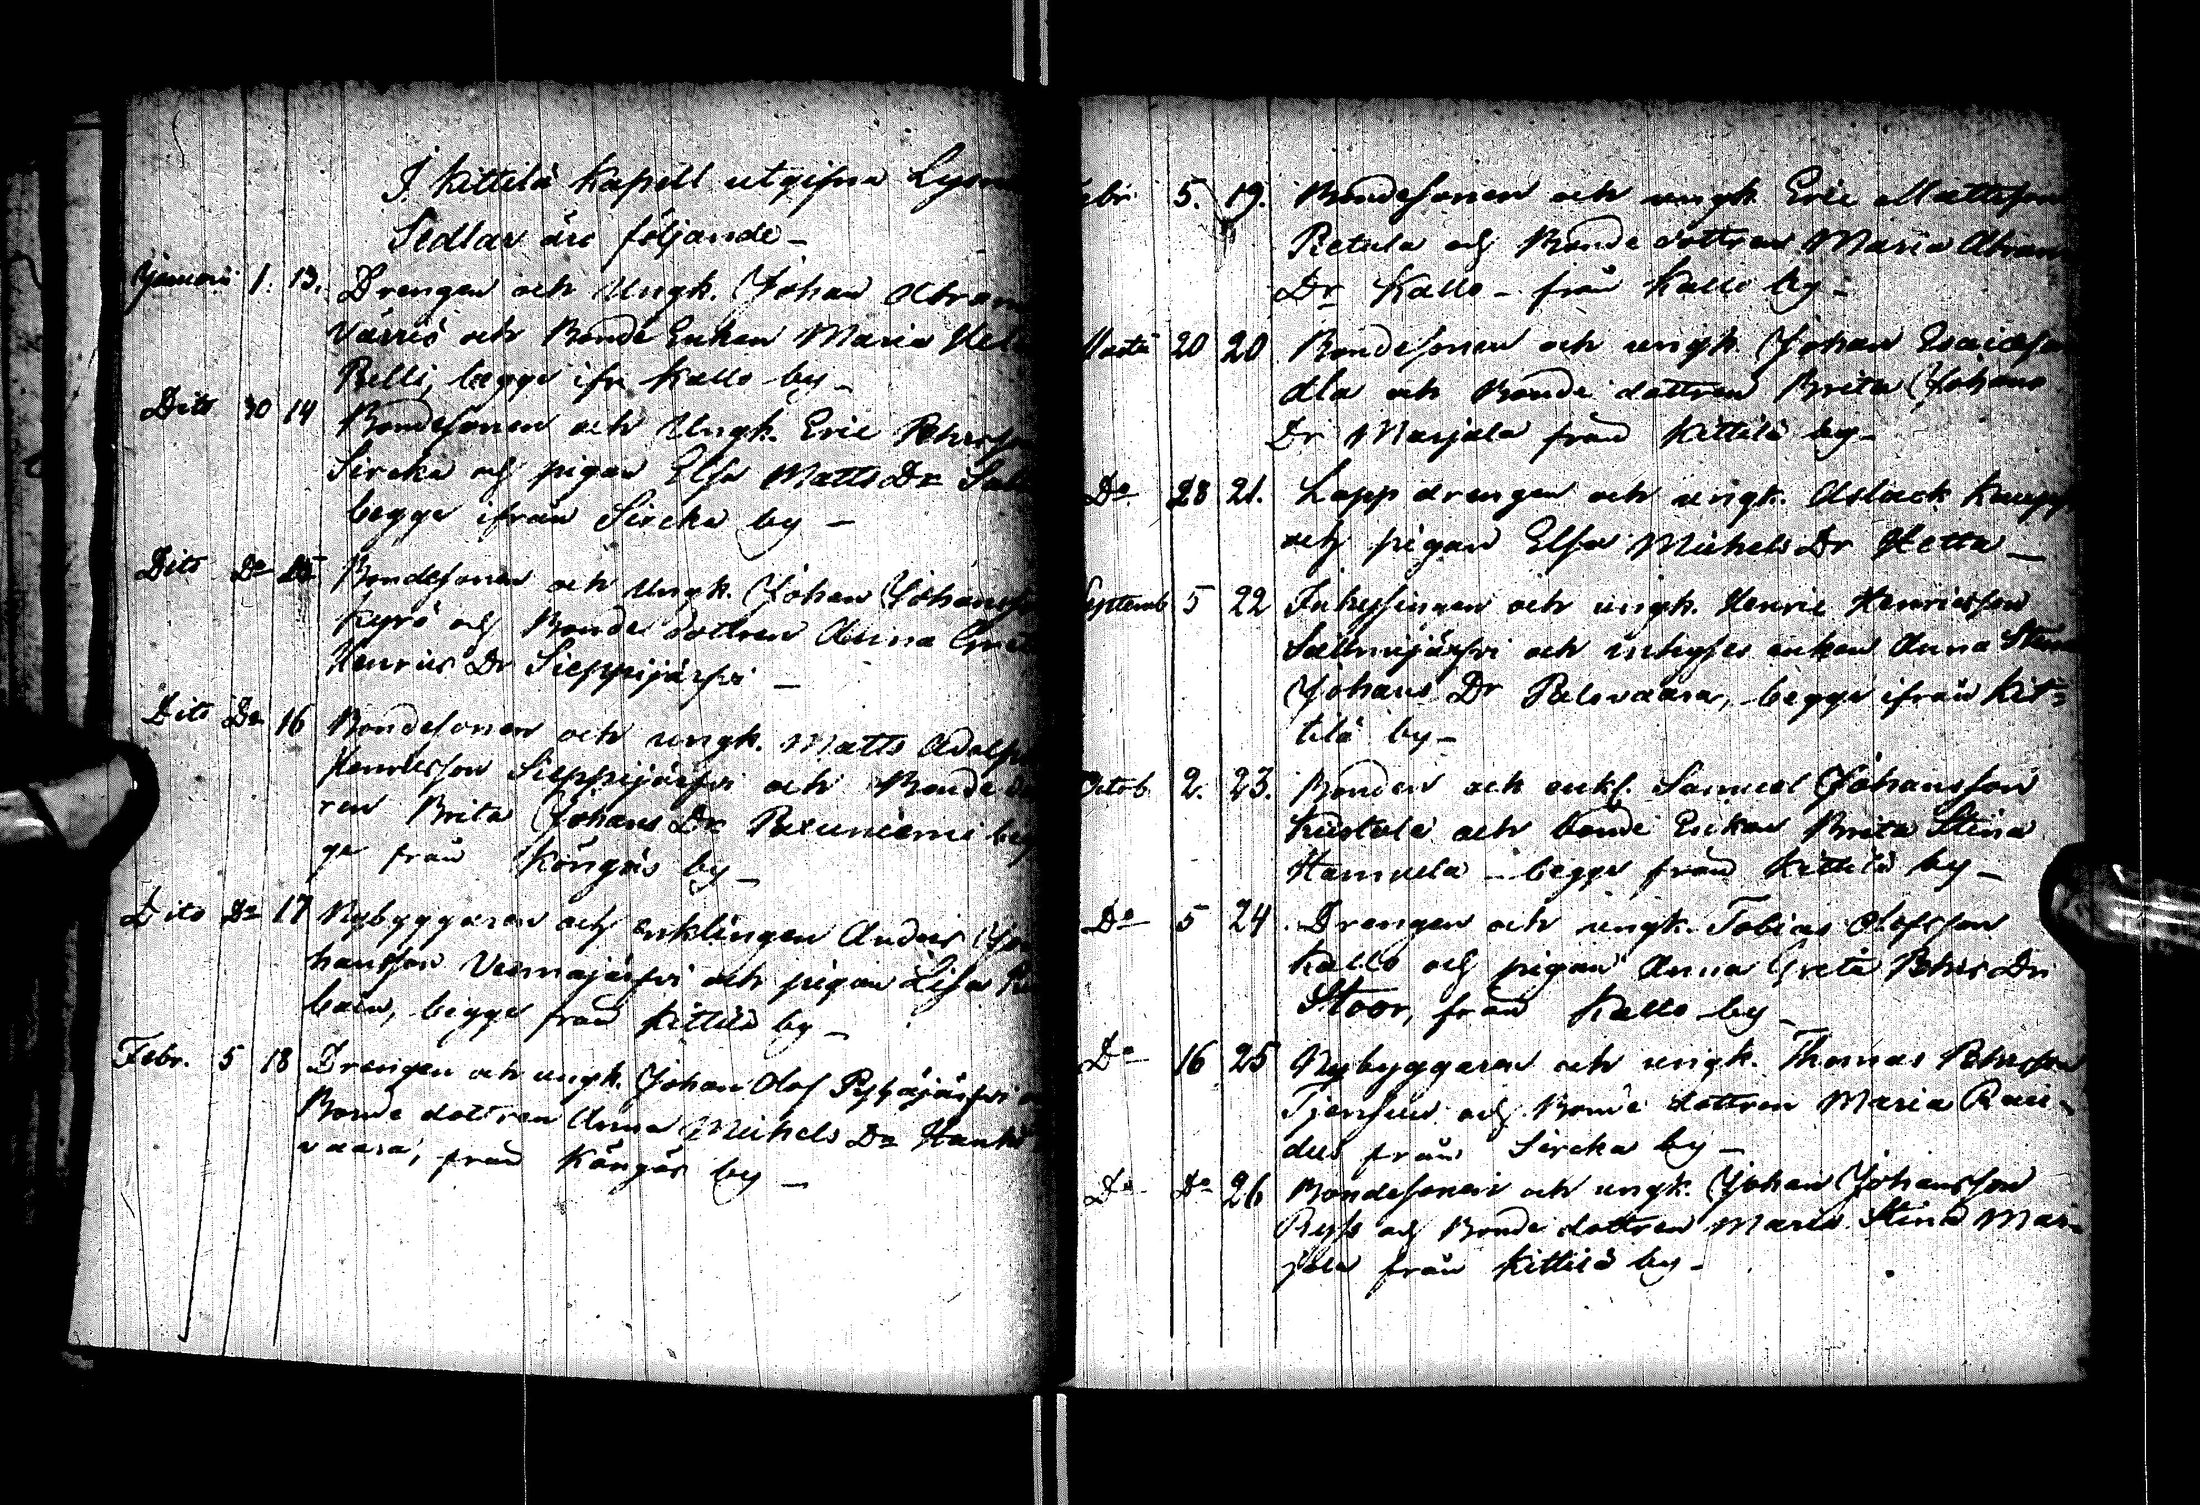 I Kittilä Kapell utgifna
Sedlar äro följande –
Januari 1. 13. Drengen och Ungk. Johan Abram
Värriö och Bonde Enkan Maria
Pelli, begge ifr. Kallo by –
Dito 30 14 Bondesonen och Ungk. Eric Pehrsson
Sircka och pigan Elsa Matts Dr
begge ifrån Sircka by –
Dito Do 15 Bondesonen och Ungk. Johan Johansson
Kyrö och Bonde dottren Anna Greta
Henrics Dr Sieppijärfvi –
Dito Do 16 Bondesonen och ungk. Matts Adolph
Henricsson Sieppijärfvi och Bonde
ren Brita Johans Dr Paluniemi beg
ge från Köngäs by –
Dito Do 17 Nybyggaren och enklingen Anders Jo
hansson Veemajärfvi och pigan Lisa
bain, begge från Kittilä by –
Febr. 5 18 Drengen och ungk. Johan Olof Pyhäjärfvi
Bonde dottren Anna Michels Dr Hanhi
vaara, från Köngäs by –
5. 19. Bondesonen och ungk. Eric Mattsson
Petula och Bonde dottren Maria Abram
Dr Kallo – från Kallo by –
20 20 Bondesonen och ungk. Johan Esaiasson
Ala och Bonde dottren Brita Johans
Dr Marjala från Kittilä by –
Do 28 21. Lapp drengen och ungk. Aslack
och pigan Elsa Michels Dr Hetta –
Septemb 5 22 Inhysingen och ungk. Henric Henricsson
Salmijärfvi och inhyses enkan Anna
Johans Dr Palovaara, begge ifrån Kit=
tilä by –
Octob. 2. 23. Bonden och enkl. Samuel Johansson
Kiistala och bonde Enkan Brita Stina
Hannula – begge från Kittilä by –
Do 5 24 Drengen och ungk. Tobias Olofsson
Kallo och pigan Anna Greta Pehrs Dr
Stoor, från Kallo by –
Do 16 25 Nybyggaren och ungk. Thomas Pehrsson
Tjernlun och Bonde dottren Maria
från Sircka by –
Do Do 26 Bondesonen och ungk. Johan Johansson
Ryss och Bonde dottren Maria Stina Mar=
jala från Kittilä by –